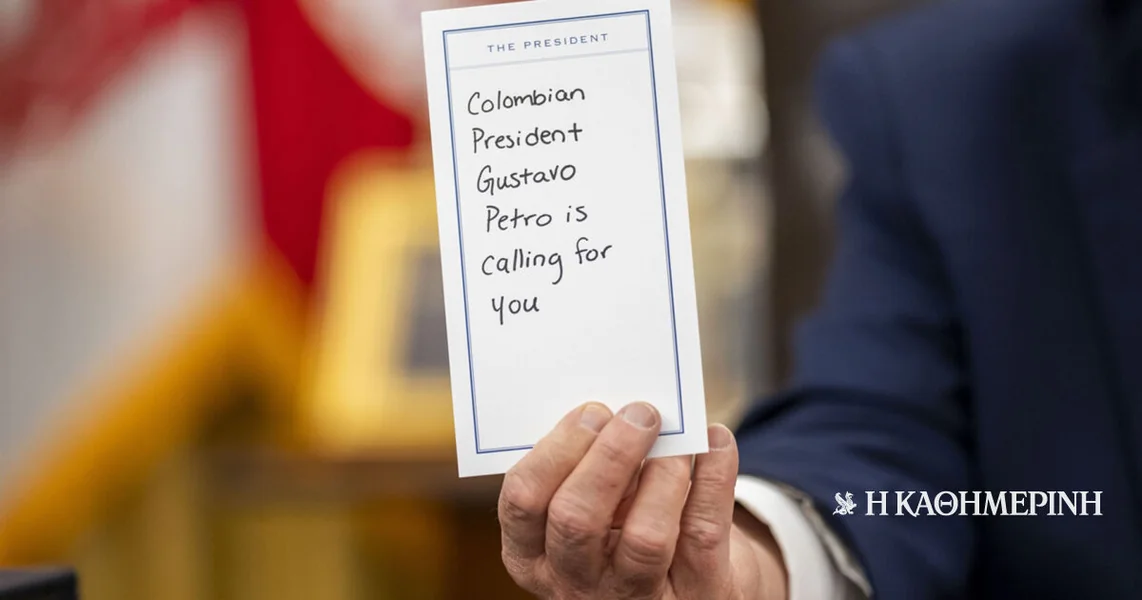 THE PRESIDENT
Colombian
President
Gustavo
Petro is
calling for
you
Η ΚΑΘΗΜΕΡΙΝΗ